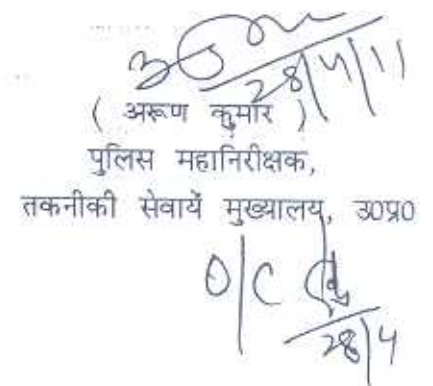 28/4/11
( अरूण कुमार )
पुलिस महानिरीक्षक,
तकनीकी सेवायें मुख्यालय, उ0प्र0
O/C
28/4